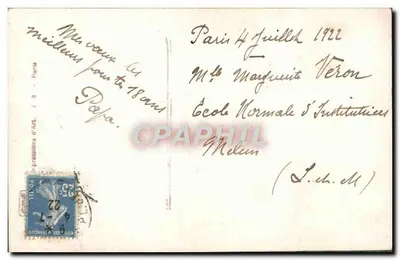 Mes vœux les
meilleurs pour tes 18 ans
Papa.
Paris 4 Juillet 1922
Mlle Marguerite Véron
École Normale d'Institutrices
Melun
(S. et M)
CPARPHIL
Paris
25
22